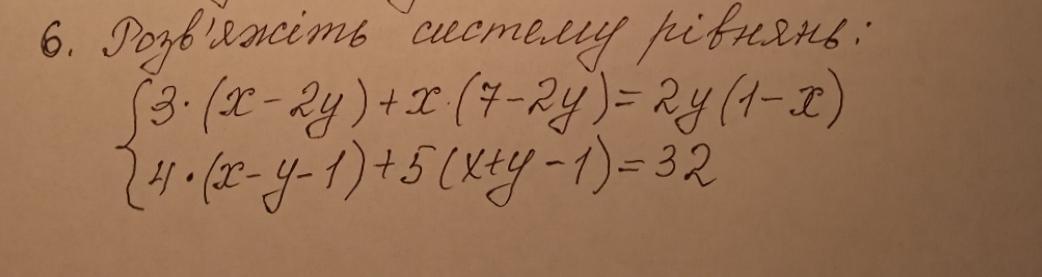 6. Розв'яжіть систему рівнянь:
{3·(x-2y)+x·(7-2y)=2y(1-x)
4·(x-y-1)+5(x+y-1)=32